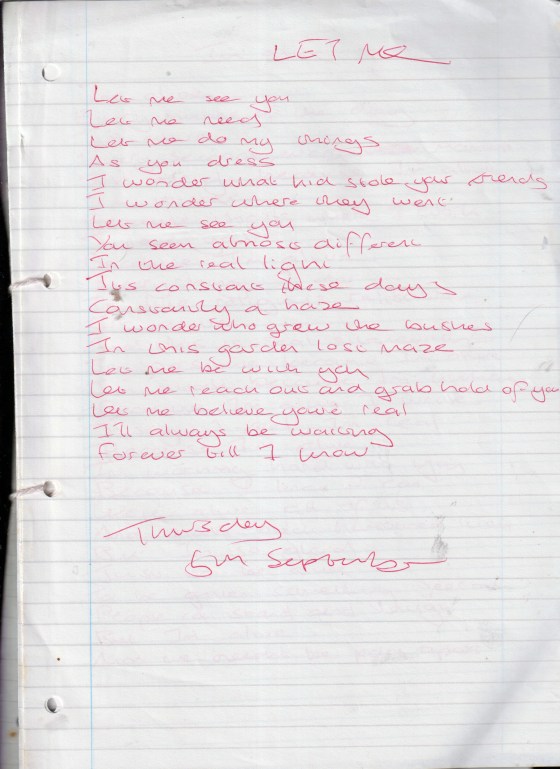 LET ME
Let me see you
Let me need
Let me do my things
As you dress
I wonder what hid stole your friends
I wonder where they went
Let me see you
You seem almost different
In the real light
It's constant these days
Constantly a haze
I wonder who grew the bushes
In this garden lost maze
Let me be with you
Let me reach out and grab hold of you
Let me believe you're real
I'll always be waiting
Forever till I know
Thursday
5th September